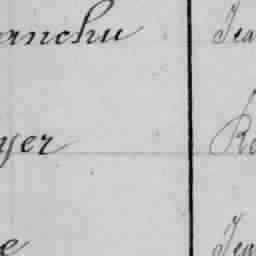 anchu Jea
yer Ro
e Jea